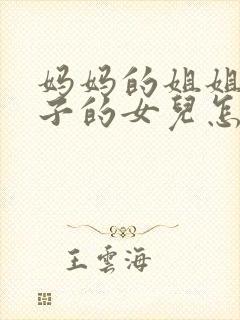 妈妈的姐姐
子的女兒怎
王雲海